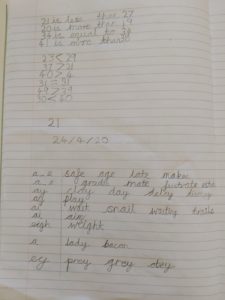 21 is less than 27
20 is more than 19
34 is equal to 34
41 is more than
23 < 29
37 > 21
40 > 4
31 = 31
49 > 29
30 < 60
21
24/4/20
a_e safe age late makes
a_e grades mate
ay clay day delay
ay play
ai wait snail waiting
ai aim
eigh weight
a lady bacon
ey prey grey obey